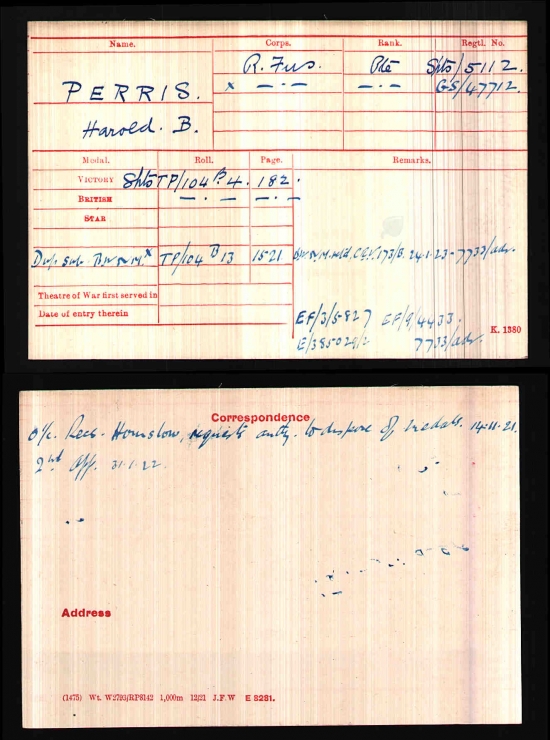 Name. Corps. Rank. Regtl. No.
PERRIS. R. Fus. Pte Spts/5112.
Harold. B. x —·— —·— GS/47712.
Medal. Roll. Page. Remarks.
VICTORY Spts TP/104 B 4. 182.
BRITISH —·— —·—
STAR
TP/104 B 13 1521 173/B. 24-1-23-7733/adr.
Theatre of War first served in
Date of entry therein
EF/3/5827 EF/9/4433.
E/385029/2 7733/adr.
K. 1380
Correspondence
O/c. Recs. Hounslow, requests authy. to dispose of medals. 14-11-21.
2nd App. 31.1.22.
Address
(1475) Wt. W2793/RP8142 1,000m 12/21 J.F.W E 8281.